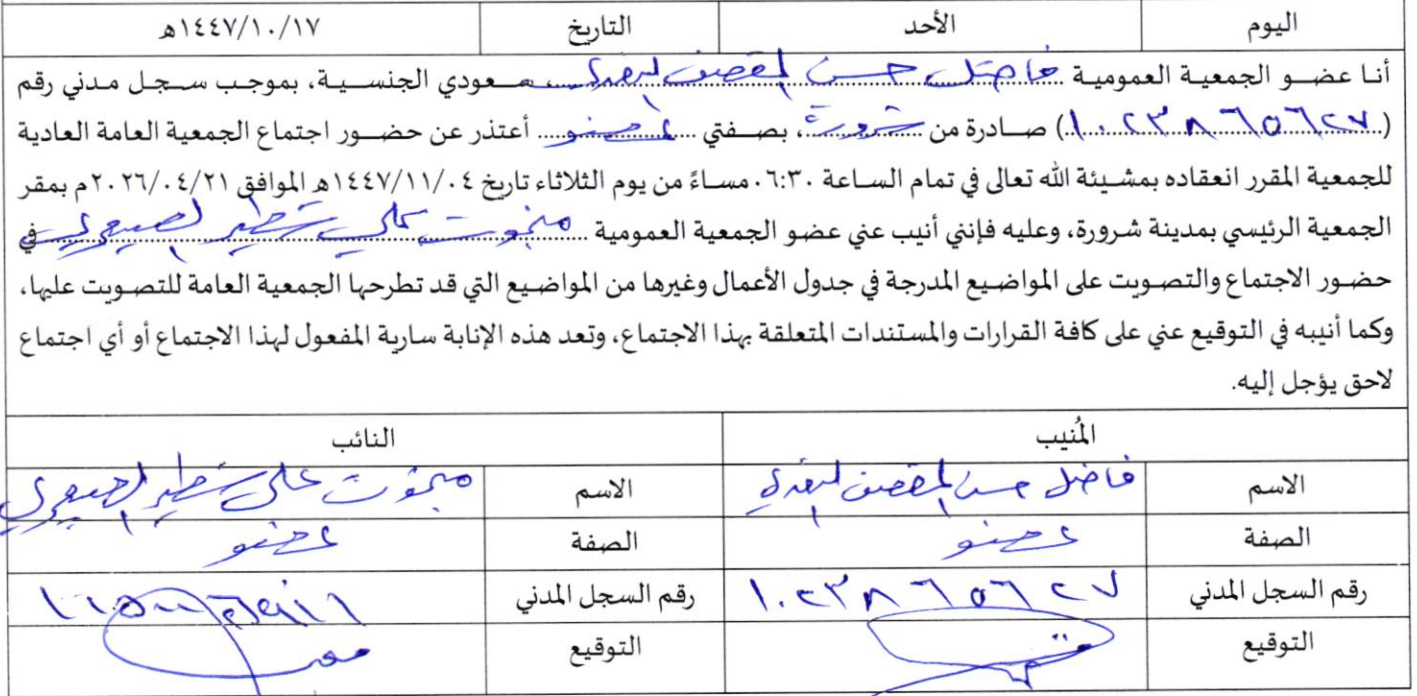 اليوم الأحد التاريخ ١٤٤٧/١٠/١٧هـ
أنا عضو الجمعية العمومية فاضل حسن سعودي الجنسية، بموجب سجل مدني رقم
(١٠٢٣٨٦٥٦٢٧) صادرة من شرورة، بصفتي عضو أعتذر عن حضور اجتماع الجمعية العامة العادية
للجمعية المقرر انعقاده بمشيئة الله تعالى في تمام الساعة ٠٦:٣٠ مساءً من يوم الثلاثاء تاريخ ١٤٤٧/١١/٠٤هـ الموافق ٢٠٢٦/٠٤/٢١م بمقر
الجمعية الرئيسي بمدينة شرورة، وعليه فإنني أنيب عني عضو الجمعية العمومية علي الصيعري في
حضور الاجتماع والتصويت على المواضيع المدرجة في جدول الأعمال وغيرها من المواضيع التي قد تطرحها الجمعية العامة للتصويت عليها،
وكما أنيبه في التوقيع عني على كافة القرارات والمستندات المتعلقة بهذا الاجتماع، وتعد هذه الإنابة سارية المفعول لهذا الاجتماع أو أي اجتماع
لاحق يؤجل إليه.
المُنيب النائب
الاسم فاضل حسن الاسم علي الصيعري
الصفة عضو الصفة عضو
رقم السجل المدني ١٠٢٣٨٦٥٦٢٧ رقم السجل المدني
التوقيع التوقيع